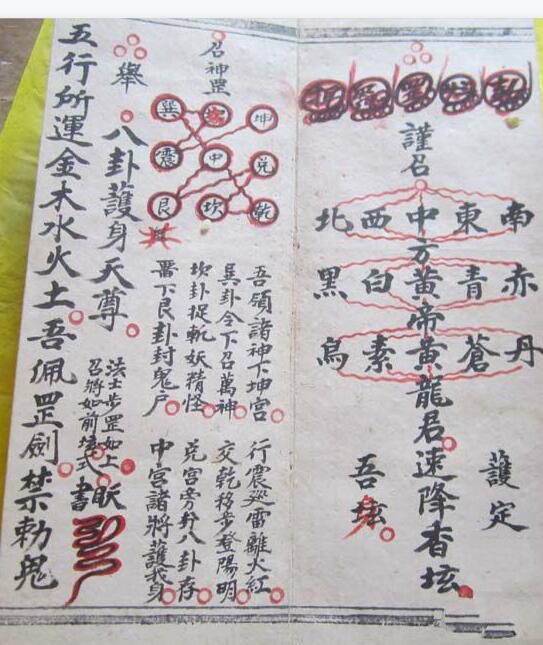 謹召
南東中西北
赤青黃白黑
丹蒼黃素烏
中方黃帝黃龍君速降香坛
護定
吾坛
召神罡
坤 巽
兌 中 震
乾 坎 艮
吾領諸神下坤宮 行震廵雷離火紅
巽卦令下召萬神 交乾移步登陽明
坎卦捉斬妖精怪 兌宮旁八卦存
罡下艮卦封鬼户 中宮諸將護我身
舉 八卦護身天尊
法士步罡如上
召將如前式 書
五行所運金木水火土吾佩罡劍禁勅鬼